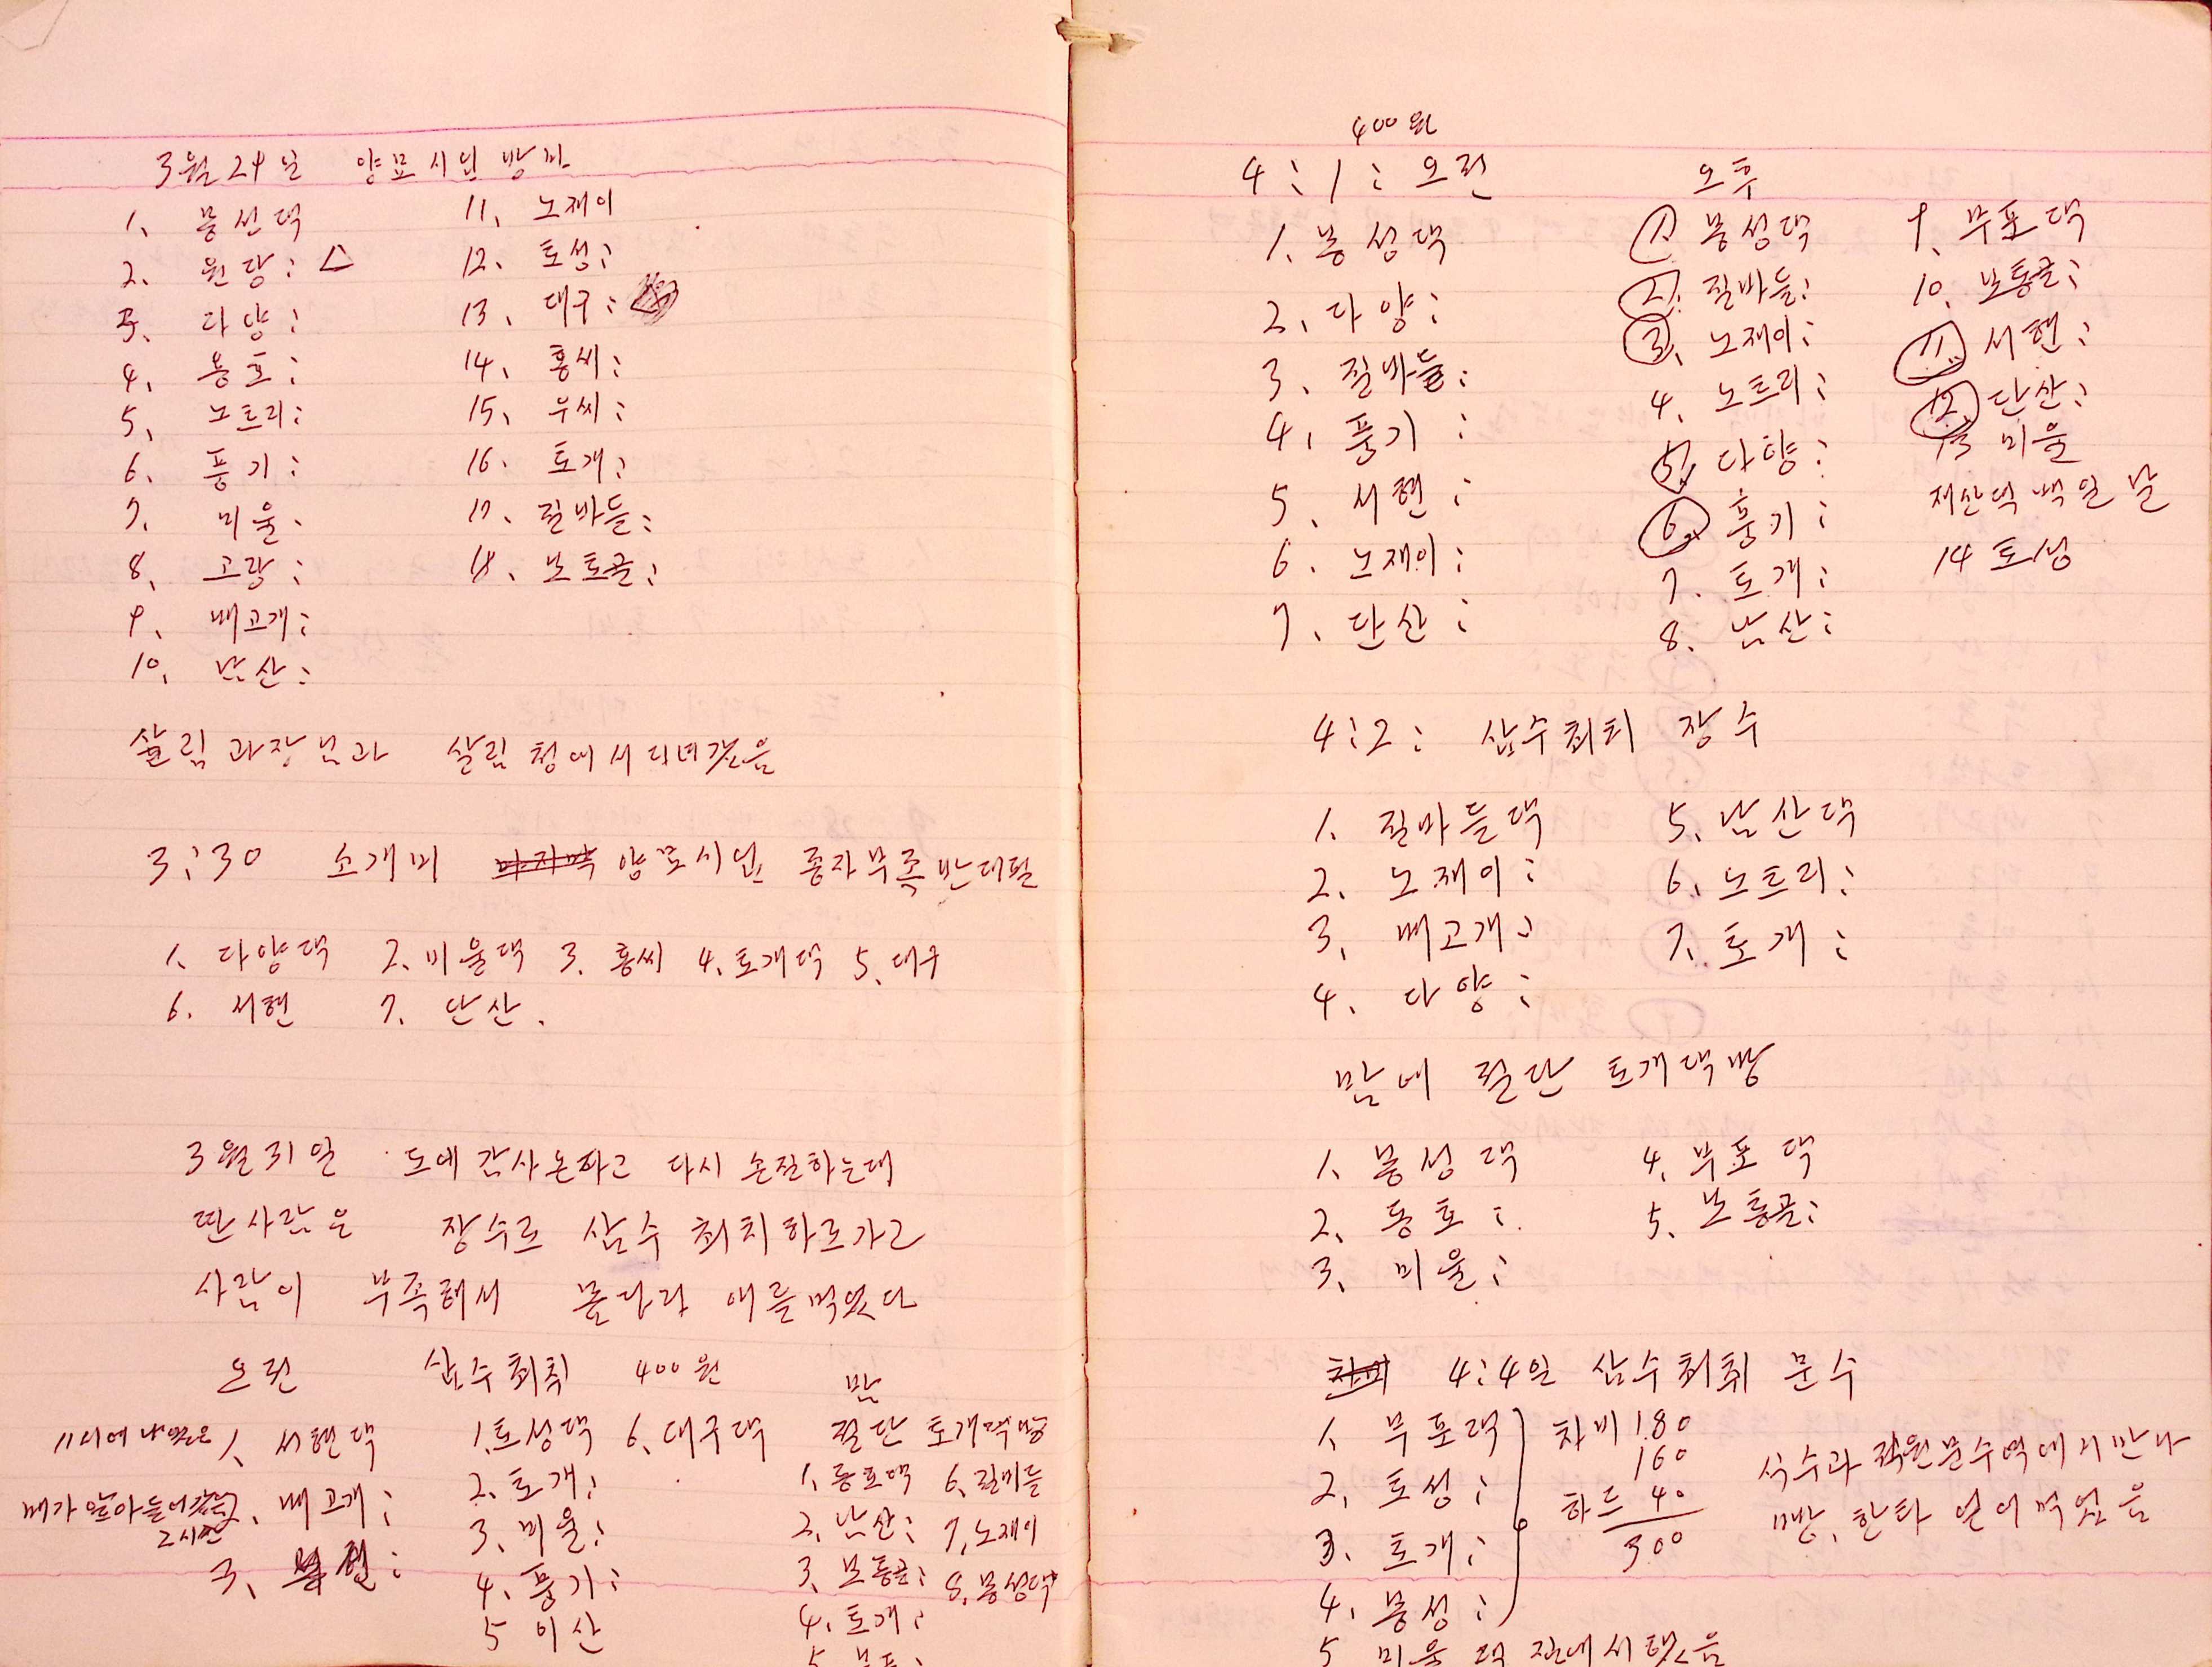 3월 24일 양묘시업
1. 봉선댁
2. 원당:
3. 다양:
4. 동호:
5. 노트리:
6. 풍기:
7. 미울.
8. 고랑:
9. 배고개:
10. 남산:
11. 노재이
12. 토성:
13. 대구:
14. 홍씨:
15. 우씨:
16. 토개:
17. 질바들:
18. 보토골:
살림과장님과 살림청에서 디녀갔음
3:30 소개미 마지막 양묘시업 종자부족 반대필
1. 다양댁 2. 미울댁 3. 홍씨 4. 토개댁 5. 대구
6. 서현 7. 단산.
3월 31일 도에 감사온다고 다시 손질하는대
딴사람은 장수로 삼수 최치하로가고
사람이 부족해서 애를먹었다
오전
1. 서현댁
2. 배고개:
2시간
3.
삼수최취 400원
1. 토성댁 6. 대구댁
2. 토개:
3. 미울:
4. 풍기:
5 이산
밤
절단 토개댁방
1. 동호댁 6. 질바들
2. 남산: 7. 노재이
3. 보통골: 8. 봉성댁
4. 토개:
400원
4:1: 오전
1. 봉성댁
2. 다양:
3. 질바들:
4. 풍기:
5. 서현:
6. 노재이:
7. 단산:
오후
1. 봉성댁
2. 질바들:
3. 노재이:
4. 노트리:
5. 다양:
6. 풍기:
7. 토개:
8. 남산:
9. 부포댁
10. 보통골:
11. 서현:
12. 단산:
13 미울
재산댁 백일 날
14 토성
4:2: 삼수최치 장수
1. 질바들댁
2. 노재이:
3. 배고개:
4. 다양:
5. 남산댁
6. 노트리:
7. 토개:
밤에 절단 토개댁방
1. 봉성댁
2. 동호:
3. 미울:
4. 부포댁
5. 보통골:
4:4일 삼수최취 문수
1. 부포댁
2. 토성:
3. 토개:
4. 봉성:
차비 180
160
하드 40
300
식수과 직원 문수역에서 만나
빵, 한타 얻어먹었음
5 미울댁